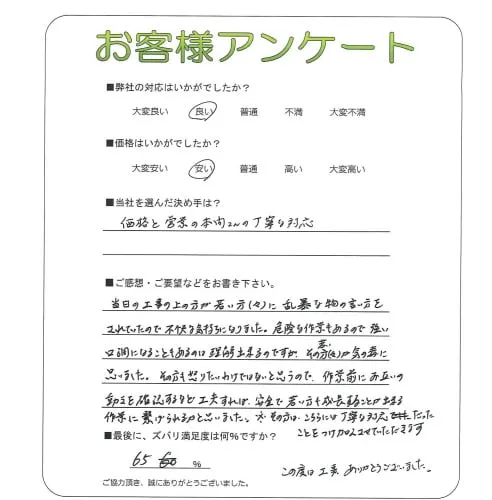 お客様アンケート
■弊社の対応はいかがでしたか？
大変良い 良い 普通 不満 大変不満
■価格はいかがでしたか？
大変安い 安い 普通 高い 大変高い
■当社を選んだ決め手は？
価格と営業の本向さんの丁寧な対応
■ご感想・ご要望などをお書き下さい。
当日の工事の上の方が若い方(々)に乱暴な物の言い方を
されていたので不快な気持ちになりました。危険な作業もあるので強い
口調になることもあるのは理解出来るのですが、その若い方(々)が気の毒に
思いました。その方も怒りたいわけではないと思うので、作業前にお互いの
動きを確認するなど工夫すれば、安全で若い方も成長することが出来る
作業に繋げられるかと思いました。その方は、こちらには丁寧な対応だった
ことをつけ加えさせていただきます
■最後に、ズバリ満足度は何％ですか？
65 60 %
この度は工事、ありがとうございました。
ご協力頂き、誠にありがとうございました。